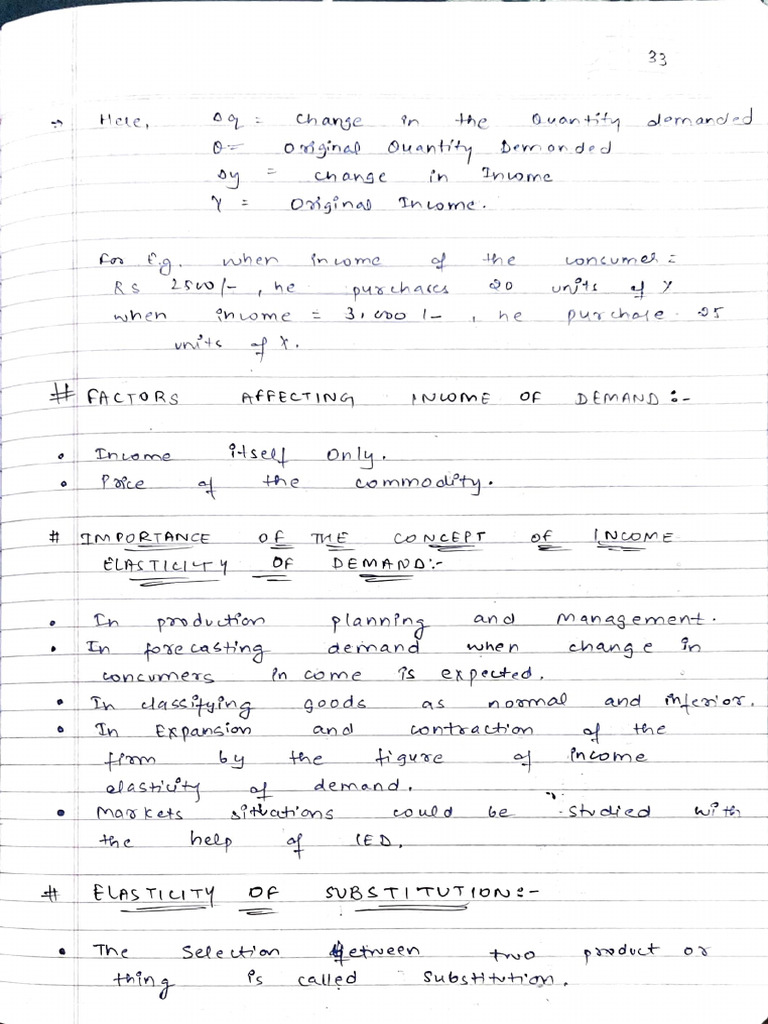 33
→ Here, Δq = change in the Quantity demanded
Q = Original Quantity Demanded
Δy = change in Income
Y = Original Income.
for E.g. when income of the consumer =
RS 2500/-, he purchases 20 units of X
when income = 3,000/-, he purchase 25
units of X.
# FACTORS AFFECTING INCOME OF DEMAND :-
• Income itself only.
• Price of the commodity.
# IMPORTANCE OF THE CONCEPT OF INCOME
ELASTICITY OF DEMAND:-
• In production planning and management.
• In forecasting demand when change in
concumers income is expected.
• In classifying goods as normal and inferior.
• In Expansion and contraction of the
firm by the figure of income
elasticity of demand.
• Markets situations could be studied with
the help of IED.
# ELASTICITY OF SUBSTITUTION:-
• The Selection between two product or
thing is called Substitution.